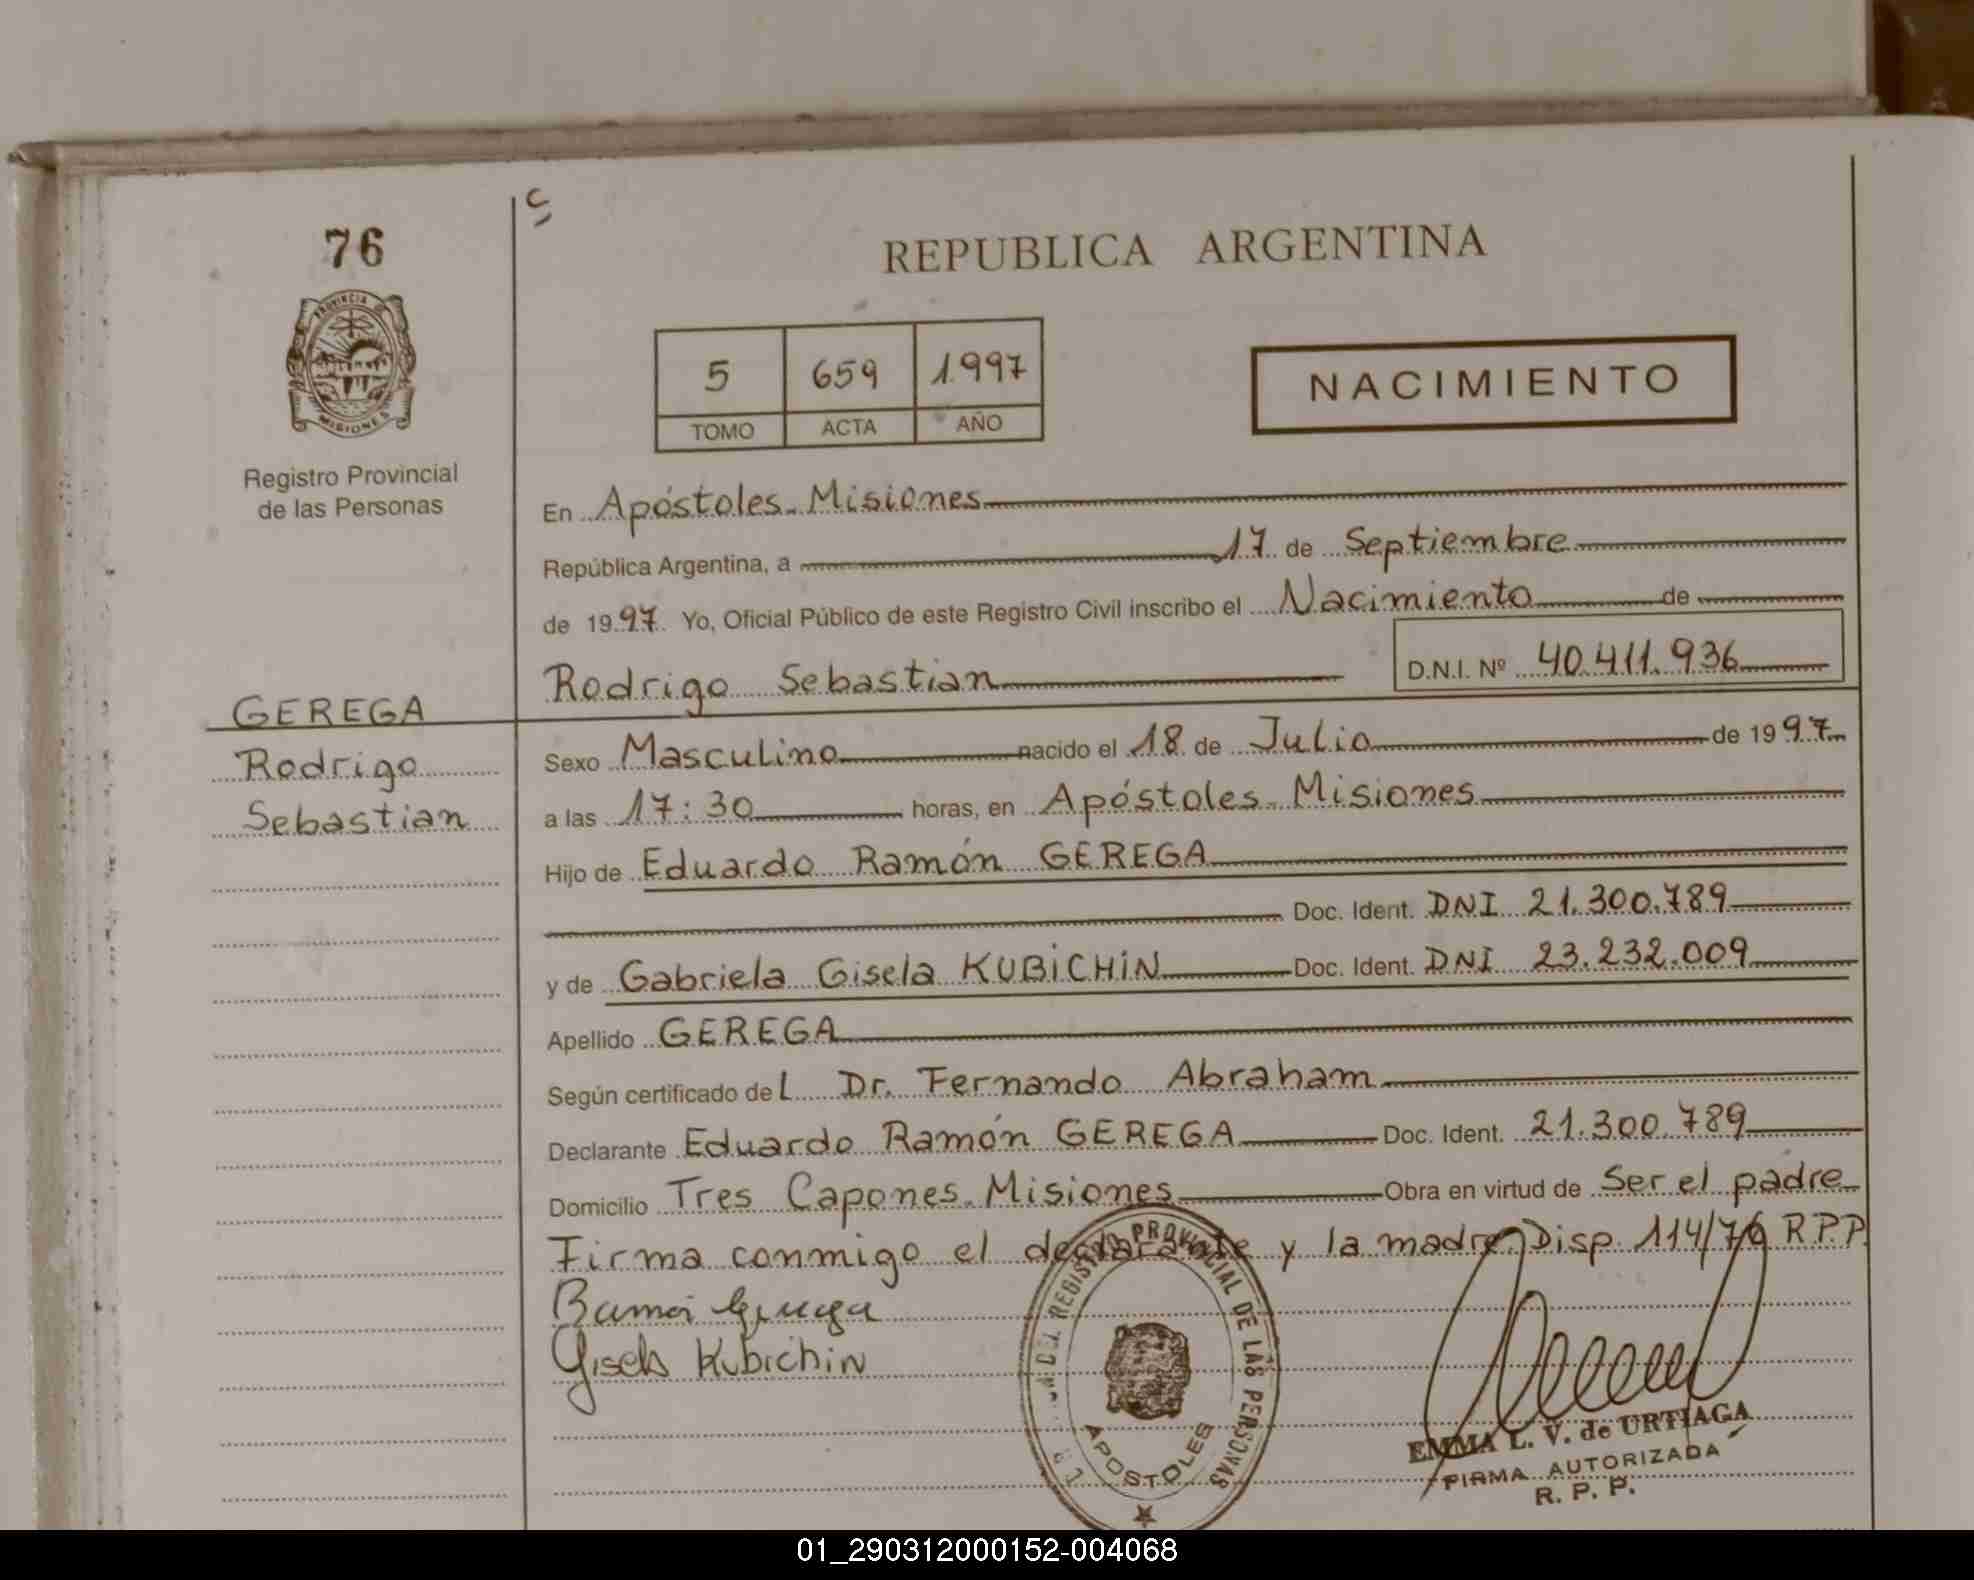 76
PROVINCIA
MISIONES
Registro Provincial
de las Personas
REPUBLICA ARGENTINA
5 659 1.997
TOMO ACTA AÑO
NACIMIENTO
En Apóstoles. Misiones
República Argentina, a 17 de Septiembre
de 1997 Yo, Oficial Público de este Registro Civil inscribo el Nacimiento de
Rodrigo Sebastian D.N.I. Nº 40.411.936
GEREGA
Rodrigo
Sebastian
Sexo Masculino nacido el 18 de Julio de 1997
a las 17:30 horas, en Apóstoles. Misiones
Hijo de Eduardo Ramón GEREGA
Doc. Ident. DNI 21.300.789
y de Gabriela Gisela KUBICHIN Doc. Ident. DNI 23.232.009
Apellido GEREGA
Según certificado del Dr. Fernando Abraham
Declarante Eduardo Ramón GEREGA Doc. Ident. 21.300.789
Domicilio Tres Capones. Misiones Obra en virtud de Ser el padre
Firma conmigo el declarante y la madre Disp. 114/76 R.P.P.
Gisela Kubichin
DEL REGISTRO PROVINCIAL DE LAS PERSONAS
APOSTOLES
EMMA L. V. de URTIAGA
FIRMA AUTORIZADA
R. P. P.
01_290312000152-004068